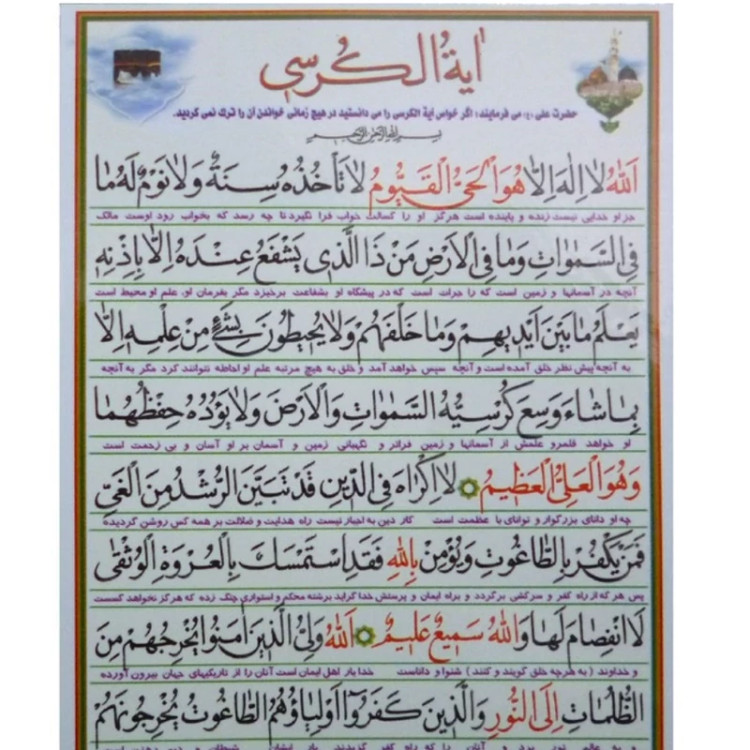 اٰیةُ الکُرسی
حضرت علی (ع) می فرمایند: اگر خواص آیة الکرسی را می دانستید در هیچ زمانی خواندن آن را ترک نمی کردید.
بسم الله الرحمن الرحیم
اَللهُ لا اِلهَ اِلّا هُوَ الْحَیُّ الْقَیُّومُ لا تَأخُذُهُ سِنَةٌ وَلا نَوْمٌ لَهُ ما
جز او خدایی نیست زنده و پاینده است هرگز او را کسالت خواب فرا نگیرد تا چه رسد که بخواب رود اوست مالک
فِی السَّمٰواتِ وَما فِی الْاَرْضِ مَنْ ذَا الَّذی یَشْفَعُ عِنْدَهُ اِلّا بِاِذْنِهِ
آنچه در آسمانها و زمین است که را جرات است که در پیشگاه او بشفاعت برخیزد مگر بفرمان او. علم او محیط است
یَعْلَمُ ما بَیْنَ اَیْدیهِمْ وَما خَلْفَهُمْ وَلا یُحیطُونَ بِشَیْءٍ مِنْ عِلْمِهِ اِلّا
به آنچه پیش نظر خلق آمده است و آنچه سپس خواهد آمد و خلق به هیچ مرتبه علم او احاطه نتوانند کرد مگر به آنچه
بِما شاءَ وَسِعَ کُرْسِیُّهُ السَّمٰواتِ وَالْاَرْضَ وَلا یَؤُدُهُ حِفْظُهُما
او خواهد قلمرو علمش از آسمانها و زمین فراتر و نگهبانی زمین و آسمان بر او آسان و بی زحمت است
وَهُوَ الْعَلِیُّ الْعَظیمُ لا اِکْراهَ فِی الدّینِ قَدْ تَبَیَّنَ الرُّشْدُ مِنَ الْغَیِّ
چه او دانای بزرگوار و توانای با عظمت است کار دین به اجبار نیست راه هدایت و ضلالت بر همه کس روشن گردیده
فَمَنْ یَکْفُرْ بِالطّاغُوتِ وَیُؤْمِنْ بِاللهِ فَقَدِ اسْتَمْسَکَ بِالْعُرْوَةِ الْوُثْقٰی
پس هر که از راه کفر و سرکشی برگردد و براه ایمان و پرستش خدا گراید برشته محکم و استواری چنگ زده که هرگز نخواهد گسست
لَا انْفِصامَ لَها وَاللهُ سَمیعٌ عَلیمٌ اَللهُ وَلِیُّ الَّذینَ اٰمَنُوا یُخْرِجُهُمْ مِنَ
و خداوند (به هرچه خلق گویند و کنند) شنوا و داناست خدا یار اهل ایمان است آنان را از تاریکیهای جهان بیرون آورده
الظُّلُماتِ اِلَی النُّورِ وَالَّذینَ کَفَرُوا اَوْلِیاؤُهُمُ الطّاغُوتُ یُخْرِجُونَهُمْ